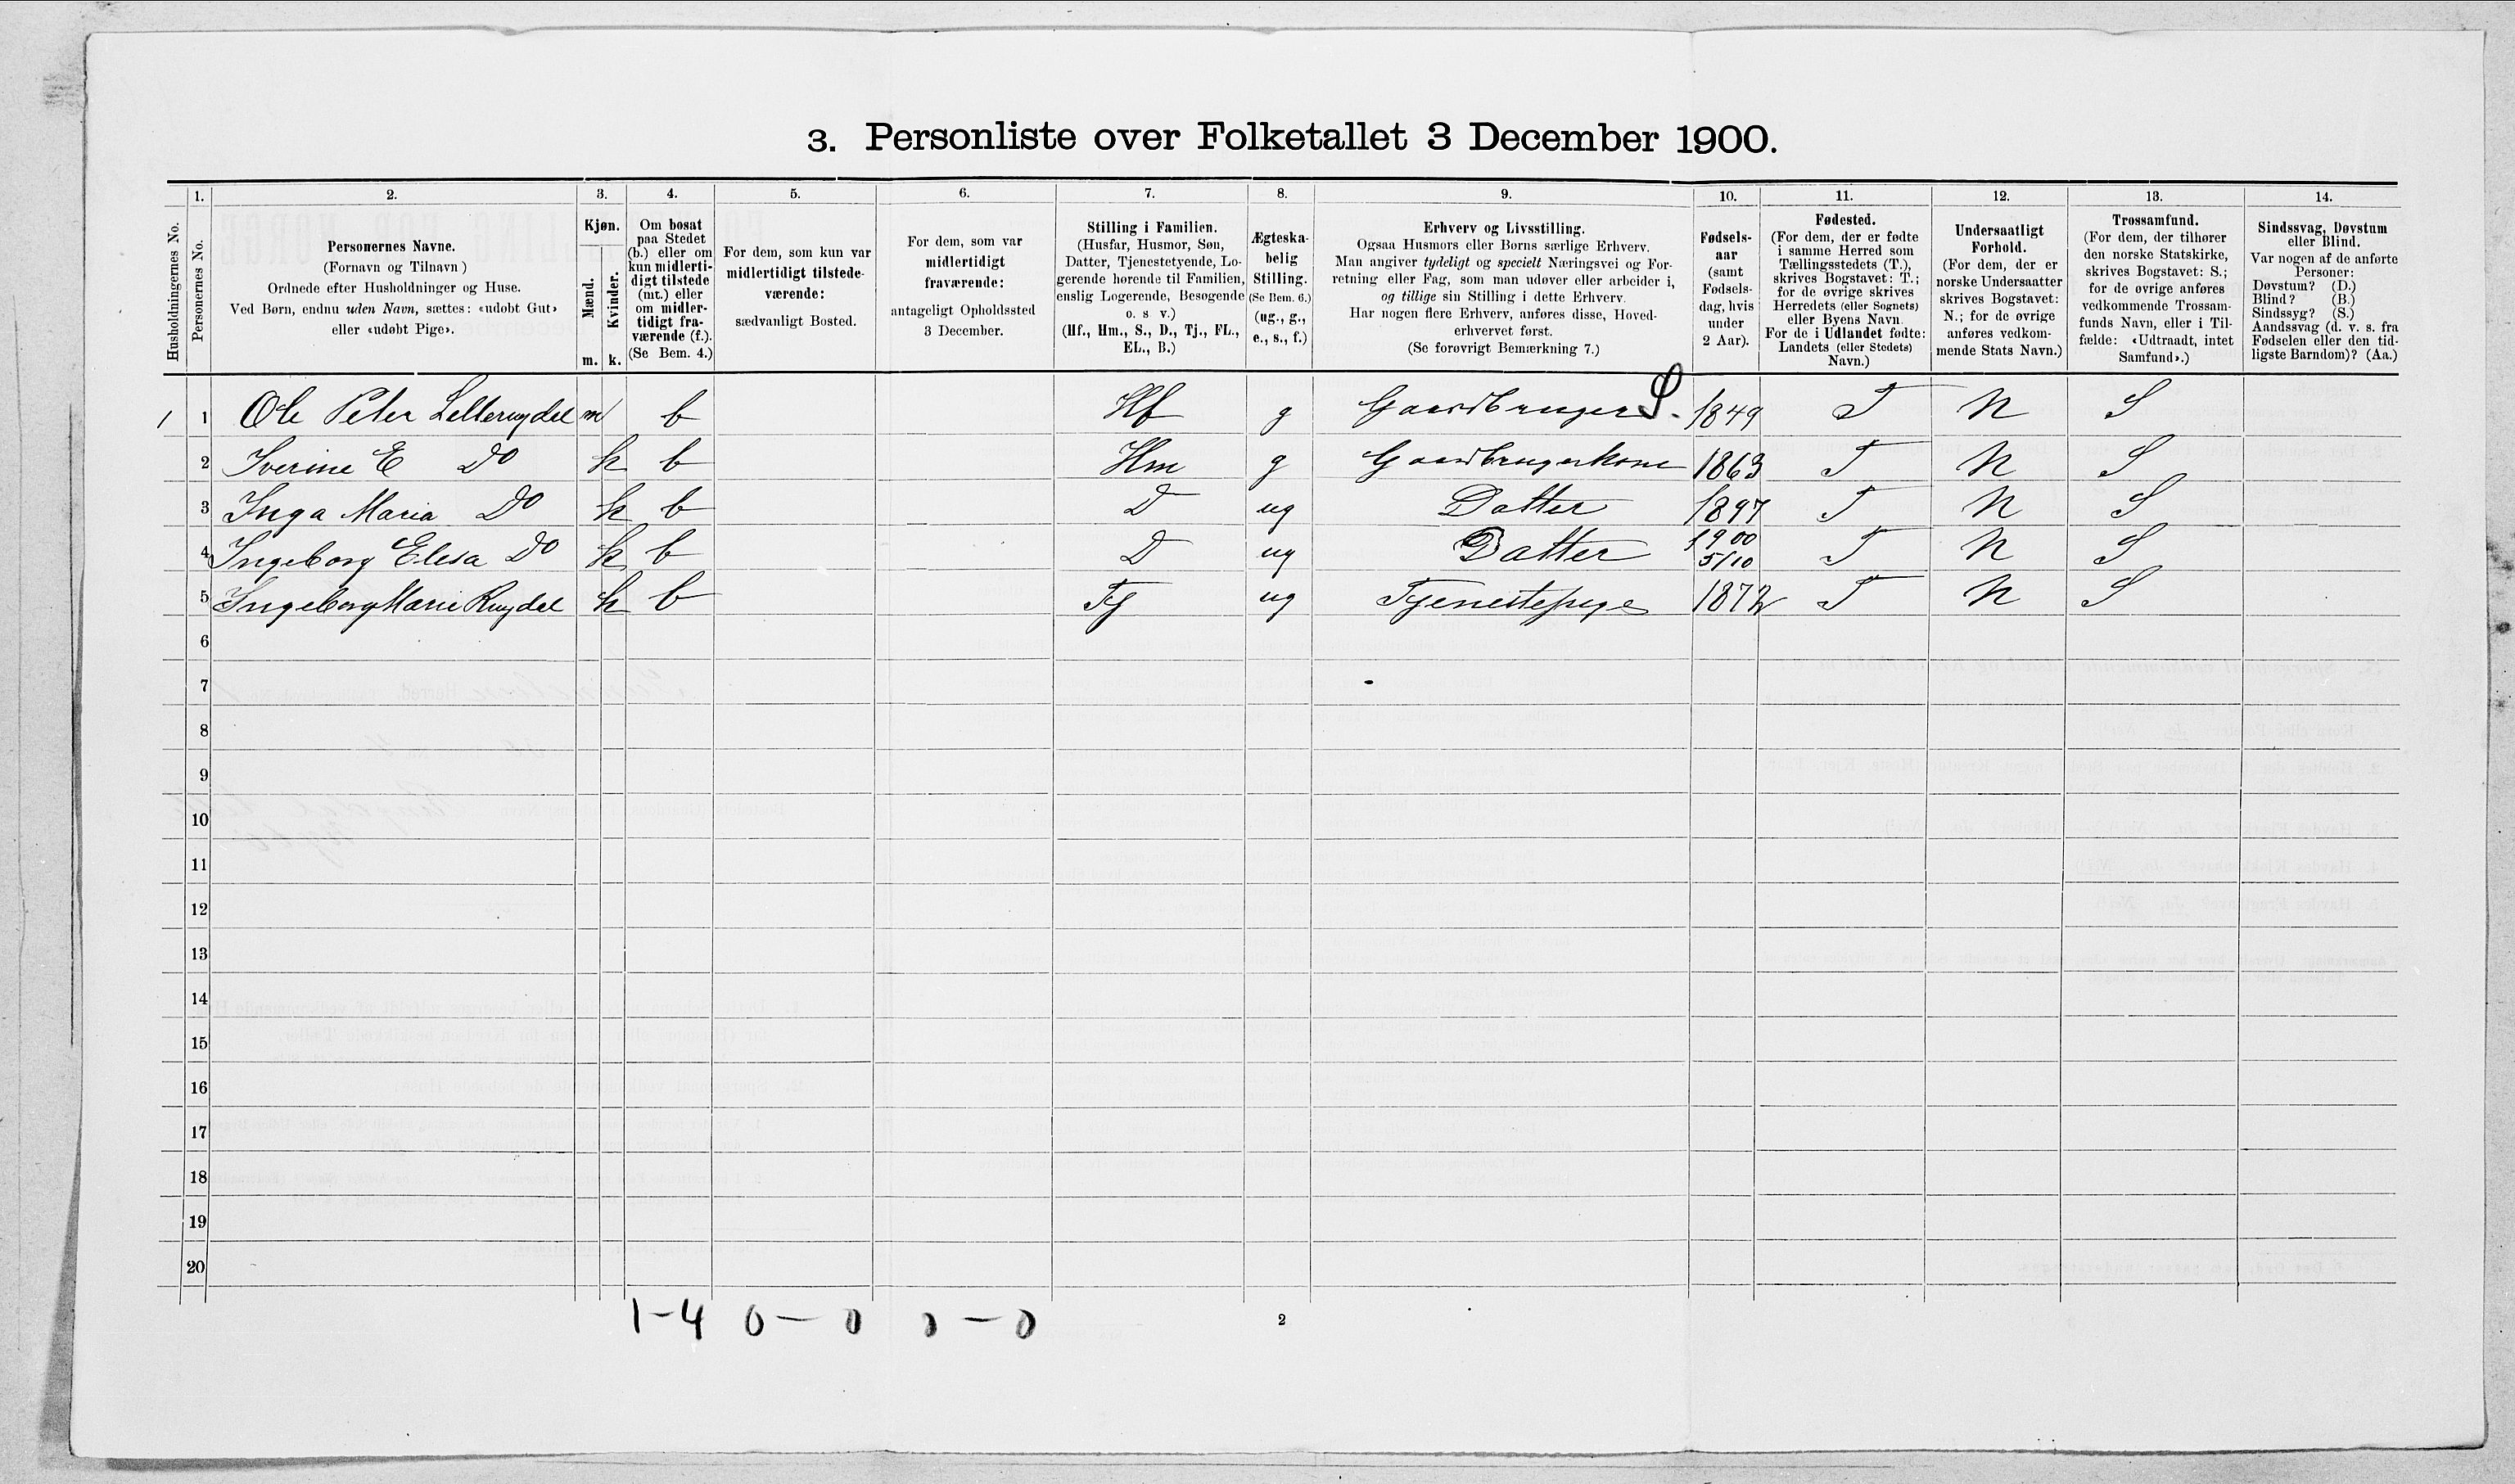 3. Personliste over Folketallet 3 December 1900.
Husholdningernes No.
1.
Personernes No.
2.
Personernes Navne.
(Fornavn og Tilnavn)
Ordnede efter Husholdninger og Huse.
Ved Børn, endnu uden Navn, sættes: «udøbt Gut»
eller «udøbt Pige».
3.
Kjøn.
Mænd.
Kvinder.
m. k.
4.
Om bosat
paa Stedet
(b.) eller om
kun midlerti-
digt tilstede
(mt.) eller
om midler-
tidigt fra-
værende (f.).
(Se Bem. 4.)
5.
For dem, som kun var
midlertidigt tilstede-
værende:
sædvanligt Bosted.
6.
For dem, som var
midlertidigt
fraværende:
antageligt Opholdssted
3 December.
7.
Stilling i Familien.
(Husfar, Husmor, Søn,
Datter, Tjenestetyende, Lo-
gerende hørende til Familien,
enslig Logerende, Besøgende
o. s v.)
(Hf., Hm., S., D., Tj., FL.,
EL., B.)
8.
Ægteska-
belig
Stilling.
(Se Bem. 6.)
(ug., g.,
e., s., f.)
9.
Erhverv og Livsstilling.
Ogsaa Husmors eller Børns særlige Erhverv.
Man angiver tydeligt og specielt Næringsvei og For-
retning eller Fag, som man udøver eller arbeider i,
og tillige sin Stilling i dette Erhverv.
Har nogen flere Erhverv, anføres disse, Hoved-
erhvervet først.
(Se forøvrigt Bemærkning 7.)
10.
Fødsels-
aar
(samt
Fødsels-
dag, hvis
under
2 Aar).
11.
Fødested.
(For dem, der er fødte
i samme Herred som
Tællingsstedets (T.),
skrives Bogstavet: T.;
for de øvrige skrives
Herredets (eller Sognets)
eller Byens Navn.
For de i Udlandet fødte:
Landets (eller Stedets)
Navn.)
12.
Undersaatligt
Forhold.
(For dem, der er
norske Undersaatter
skrives Bogstavet:
N.; for de øvrige
anføres vedkom-
mende Stats Navn.)
13.
Trossamfund.
(For dem, der tilhører
den norske Statskirke,
skrives Bogstavet: S.;
for de øvrige anføres
vedkommende Trossam-
funds Navn, eller i Til-
fælde: «Udtraadt, intet
Samfund».)
14.
Sindssvag, Døvstum
eller Blind.
Var nogen af de anførte
Personer:
Døvstum? (D.)
Blind? (B.)
Sindssyg? (S.)
Aandssvag (d. v. s. fra
Fødselen eller den tid-
ligste Barndom)? (Aa.)
1 1 Ole Peter m b Hf g Gaardbruger S. 1849 T N S
2 Iverine E Do k b Hm g Gaardbrugerkone 1863 T N S
3 Inga Maria Do k b D ug Datter 1897 T N S
4 Ingeborg Elesa Do k b D ug Datter 1900 5/10 T N S
5 Ingeborg Marie Rugdel k b Tj ug Tjenestepige 1872 T N S
6
7
8
9
10
11
12
13
14
15
16
17
18
19
20
1-4 0-0 0-0
2